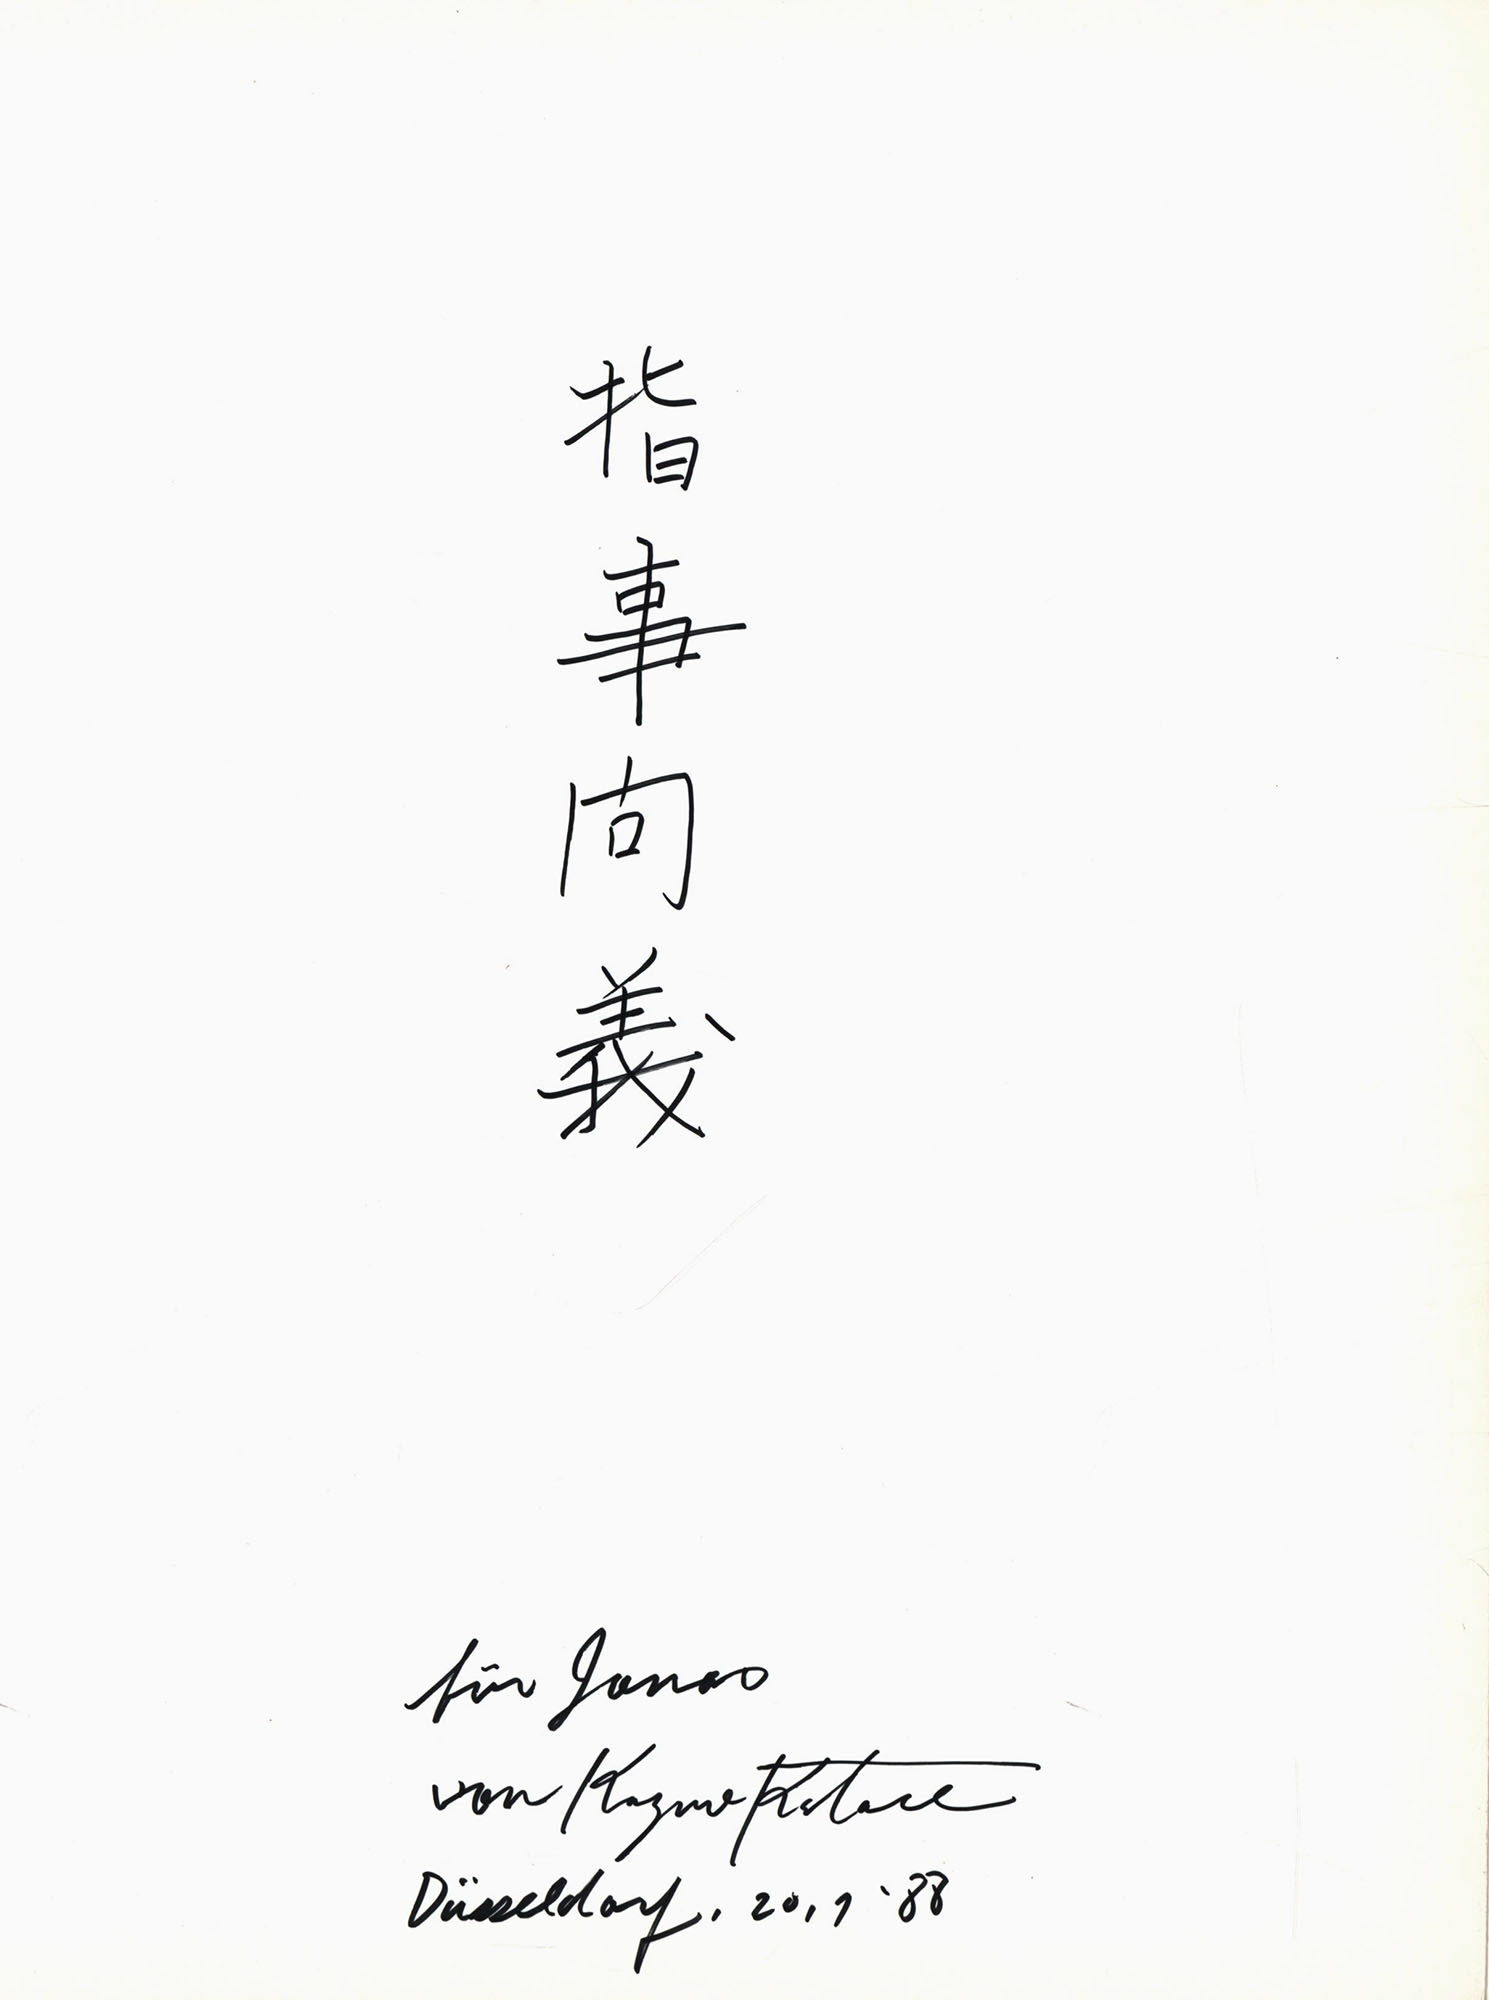 指事向義
für Jonas
von Kazuo Katase
Düsseldorf, 20,1 '88